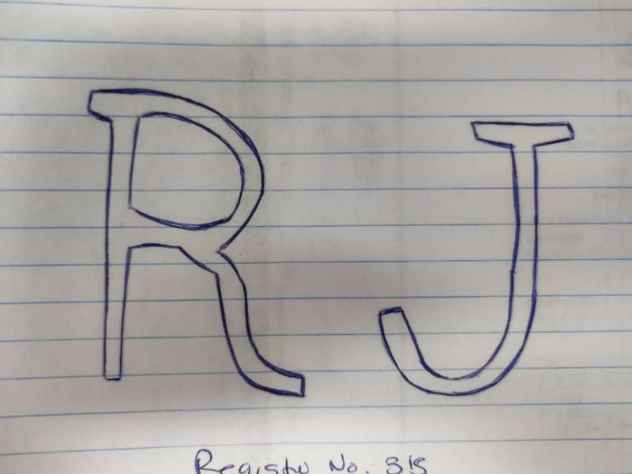 R J
Registo No. 315